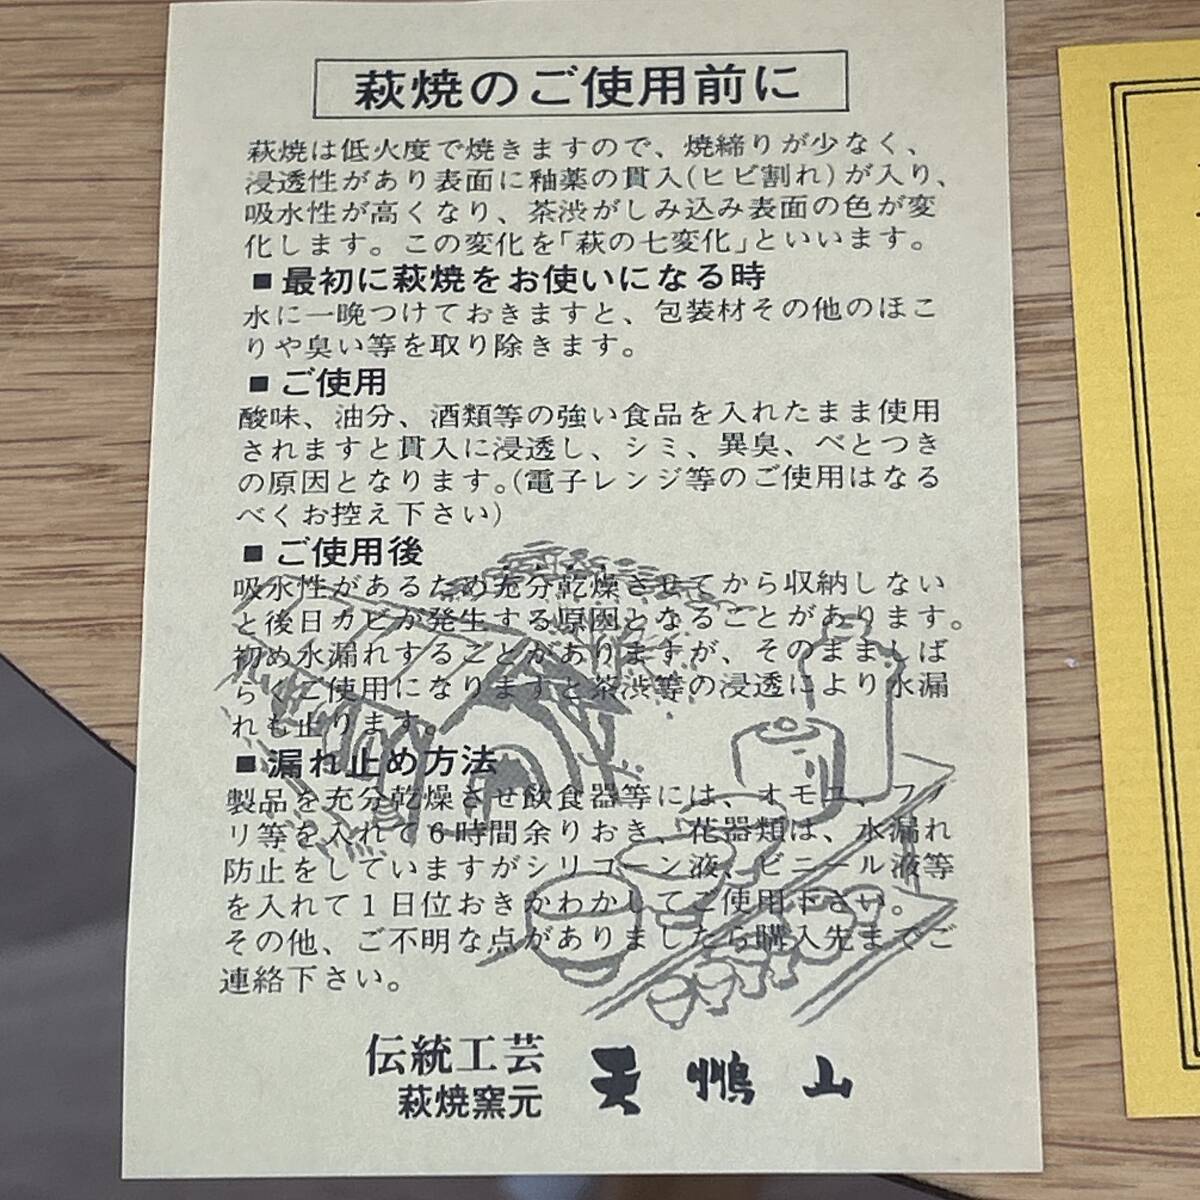 萩焼のご使用前に
萩焼は低火度で焼きますので、焼締りが少なく、
浸透性があり表面に釉薬の貫入(ヒビ割れ)が入り、
吸水性が高くなり、茶渋がしみ込み表面の色が変
化します。この変化を「萩の七変化」といいます。
■最初に萩焼をお使いになる時
水に一晩つけておきますと、包装材その他のほこ
りや臭い等を取り除きます。
■ご使用
酸味、油分、酒類等の強い食品を入れたまま使用
されますと貫入に浸透し、シミ、異臭、べとつき
の原因となります。(電子レンジ等のご使用はなる
べくお控え下さい)
■ご使用後
吸水性があるため充分乾燥させてから収納しない
と後日カビが発生する原因となることがあります。
初め水漏れすることがありますが、そのまましば
らくご使用になりますと茶渋等の浸透により水漏
れも止ります。
■漏れ止め方法
製品を充分乾燥させ飲食器等には、オモユ、フノ
リ等を入れて6時間余りおき、花器類は、水漏れ
防止をしていますがシリコーン液、ビニール液等
を入れて1日位おきかわかしてご使用下さい。
その他、ご不明な点がありましたら購入先までご
連絡下さい。
伝統工芸
萩焼窯元 天鵬山